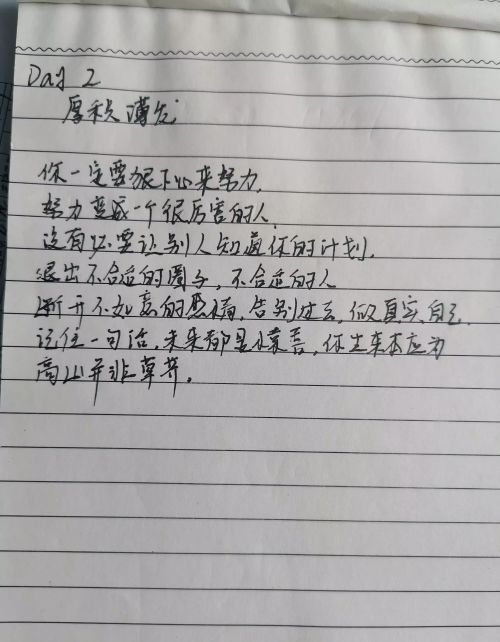 Day 2
厚积薄发
你一定要狠下心来努力,
努力变成一个很厉害的人,
没有必要让别人知道你的计划,
退出不合适的圈子,不合适的人
断开不如意的感情,告别过去,做真实自己.
记住一句话,未来都是惊喜,你生来本应为
高山并非草芥。